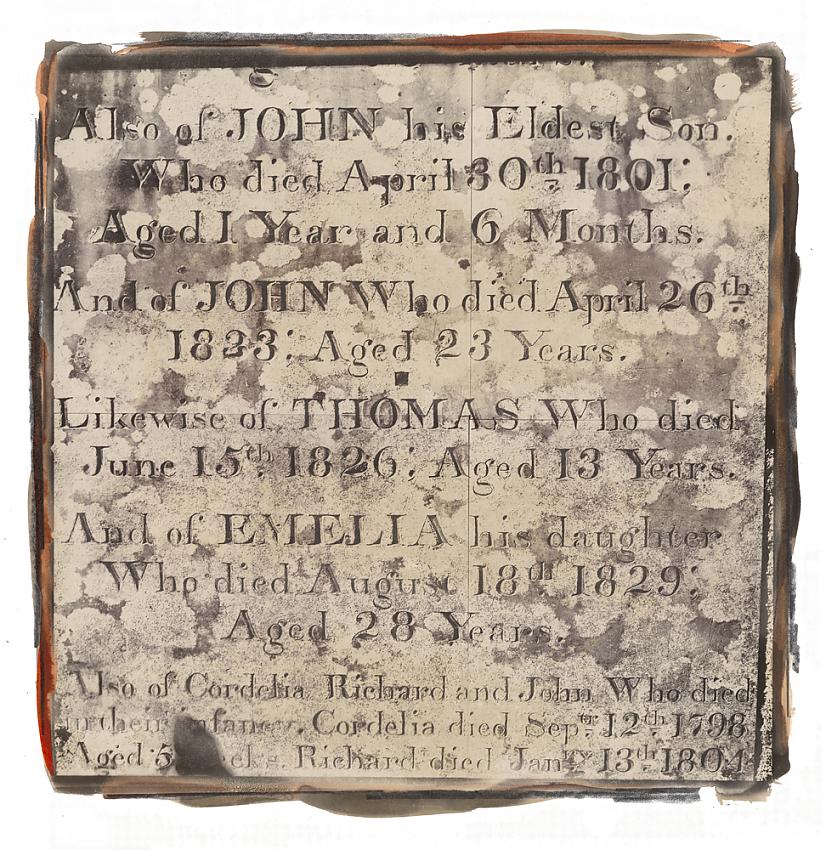 Also of JOHN his Eldest Son.
Who died April 30th 1801:
Aged 1 Year and 6 Months.
And of JOHN Who died April 26th
1823: Aged 23 Years.
Likewise of THOMAS Who died
June 15th 1826: Aged 13 Years.
And of EMELIA his daughter
Who died August 18th 1829:
Aged 28 Years.
Also of Cordelia Richard and John Who died
in their infancy. Cordelia died Sepr. 12th 1798
Aged 5 Weeks. Richard died Jany 13th 1804